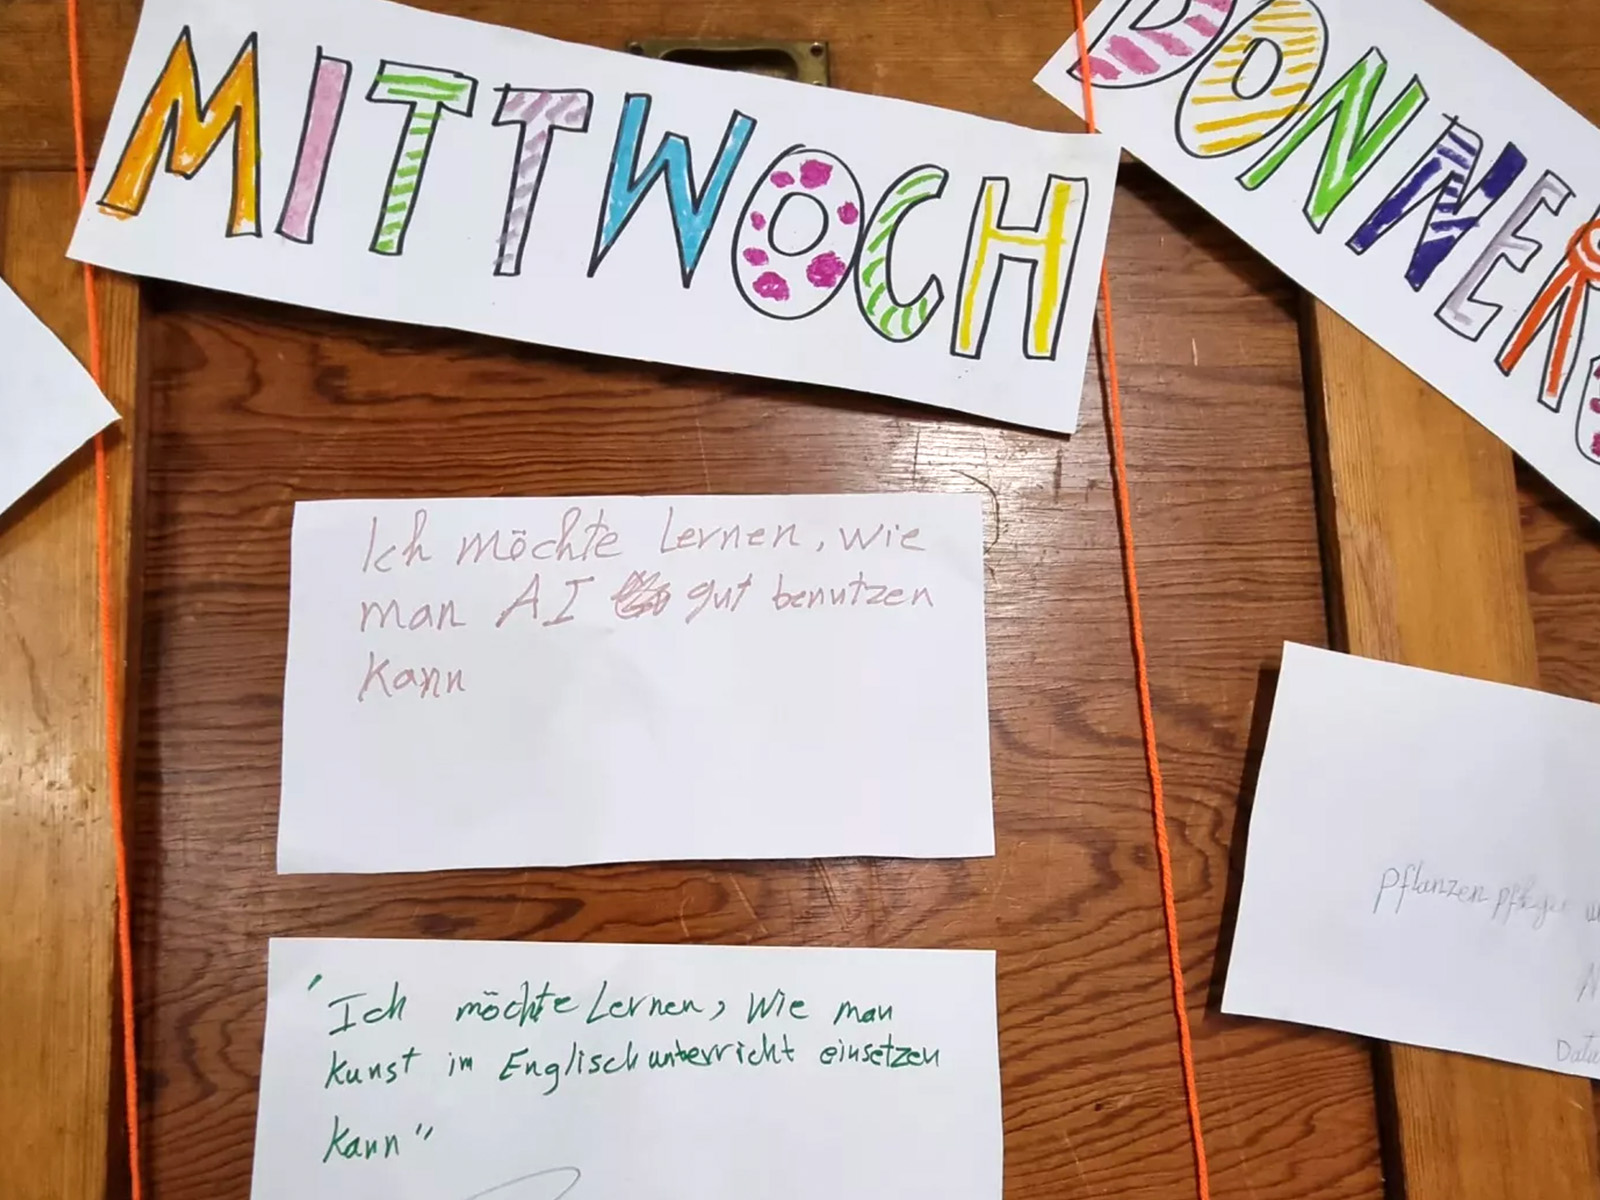 MITTWOCH
DONNERS
Ich möchte Lernen, wie
man AI gut benutzen
kann
"Ich möchte Lernen, Wie man
kunst im Englischunterricht einsetzen
kann"
Pflanzen
Data